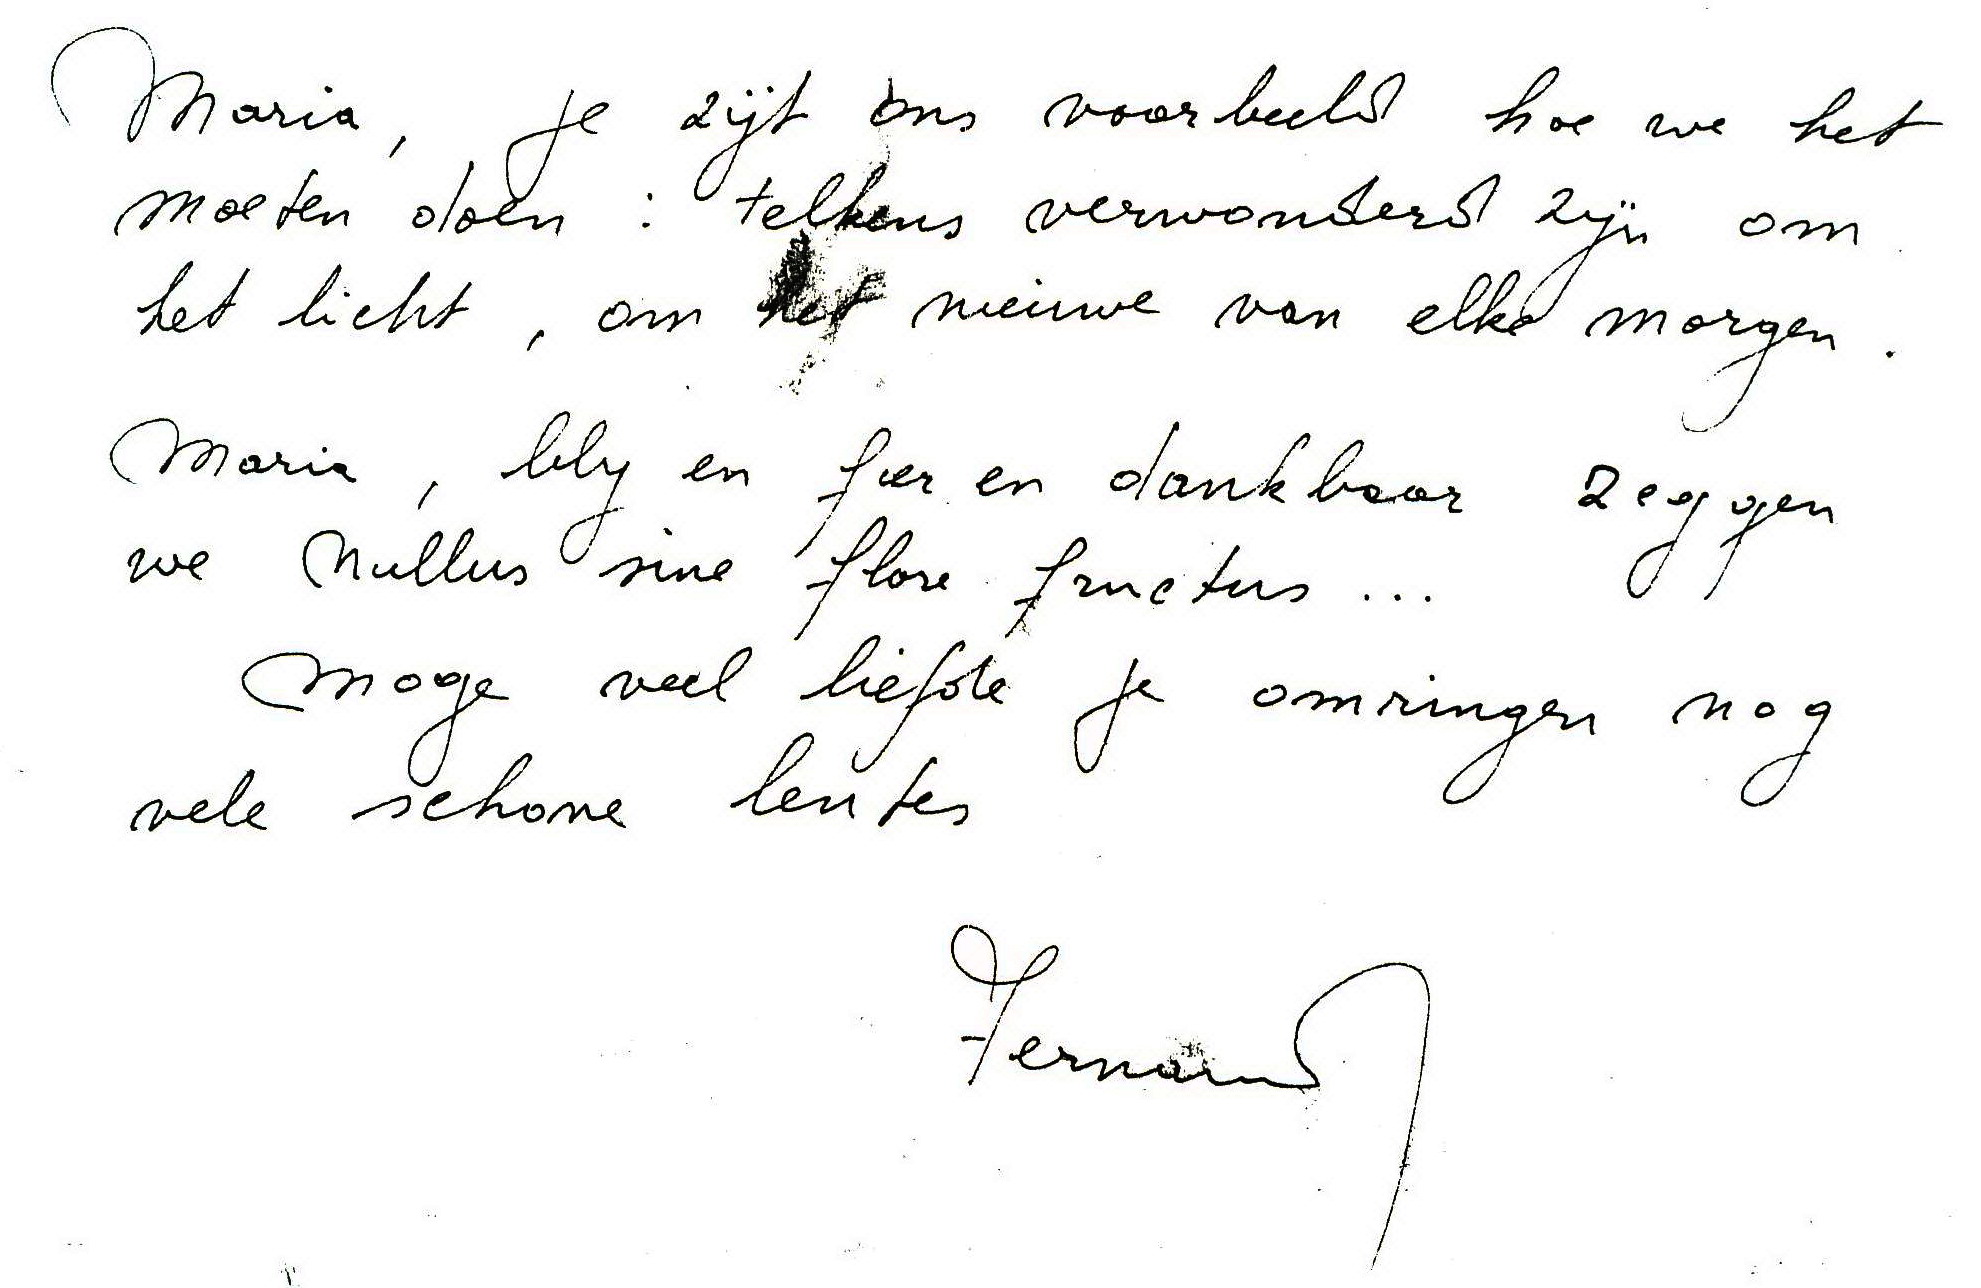 Maria, je zijt ons voorbeeld hoe we het
moeten doen : telkens verwonderd zijn om
het licht, om het nieuwe van elke morgen.
Maria, blij en fier en dankbaar zeggen
we Nullus sine flore fructus ...
Moge veel liefde je omringen nog
vele schone lentes
Fernand